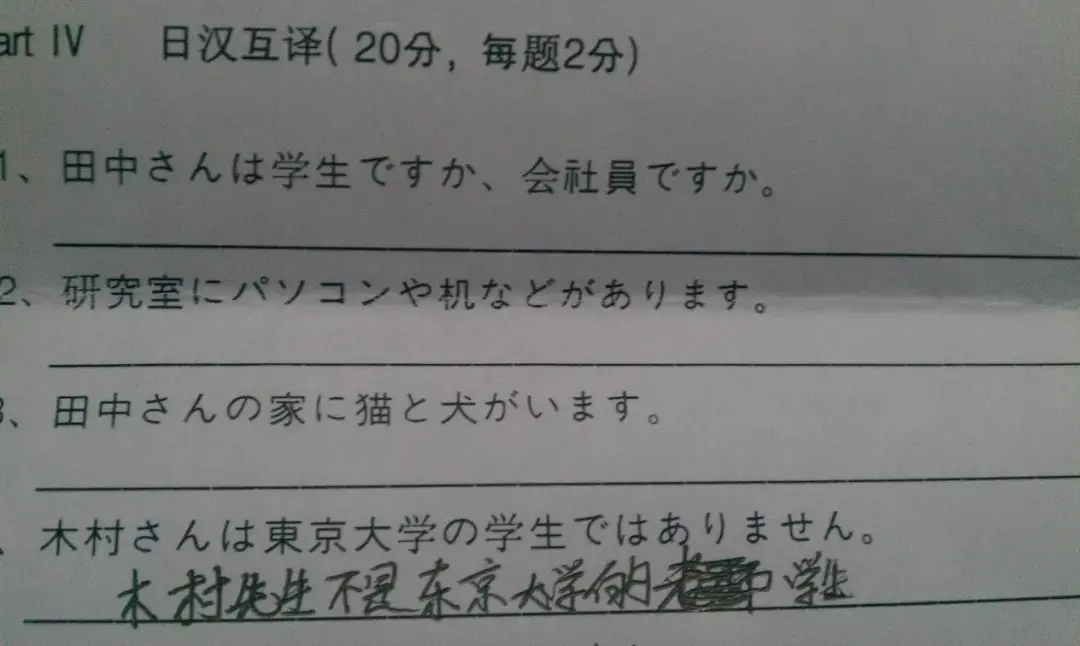 art IV 日汉互译( 20分，每题2分)
1、田中さんは学生ですか、会社員ですか。
2、研究室にパソコンや机などがあります。
3、田中さんの家に猫と犬がいます。
、木村さんは東京大学の学生ではありません。
木村先生不是东京大学的学生